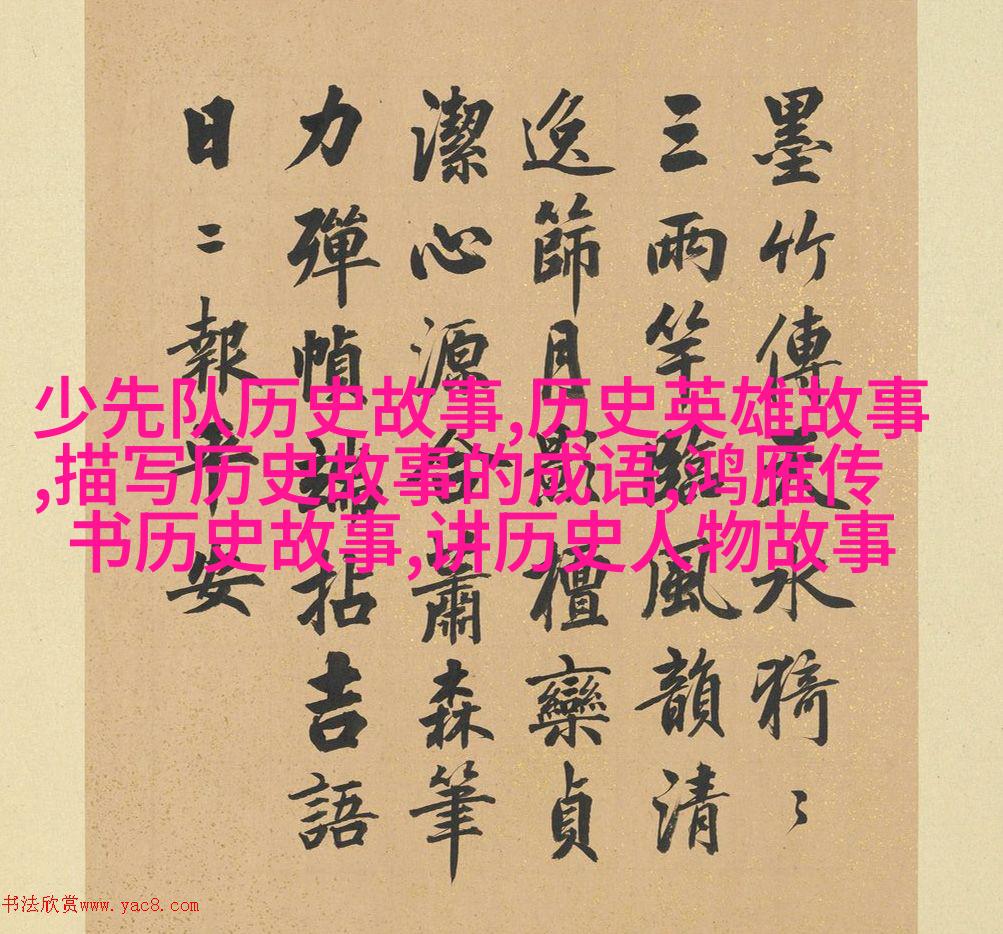 墨竹傳水猗〻
三兩竿臨風韻清
逸篩月影檀欒貞
潔心源蕭森筆
力彈幀拈吉語
日二報平安
少先队历史故事,历史英雄故事
,描写历史故事的成语,鸿雁传
书历史故事,讲历史人物故事
书法欣赏www.yac8.com